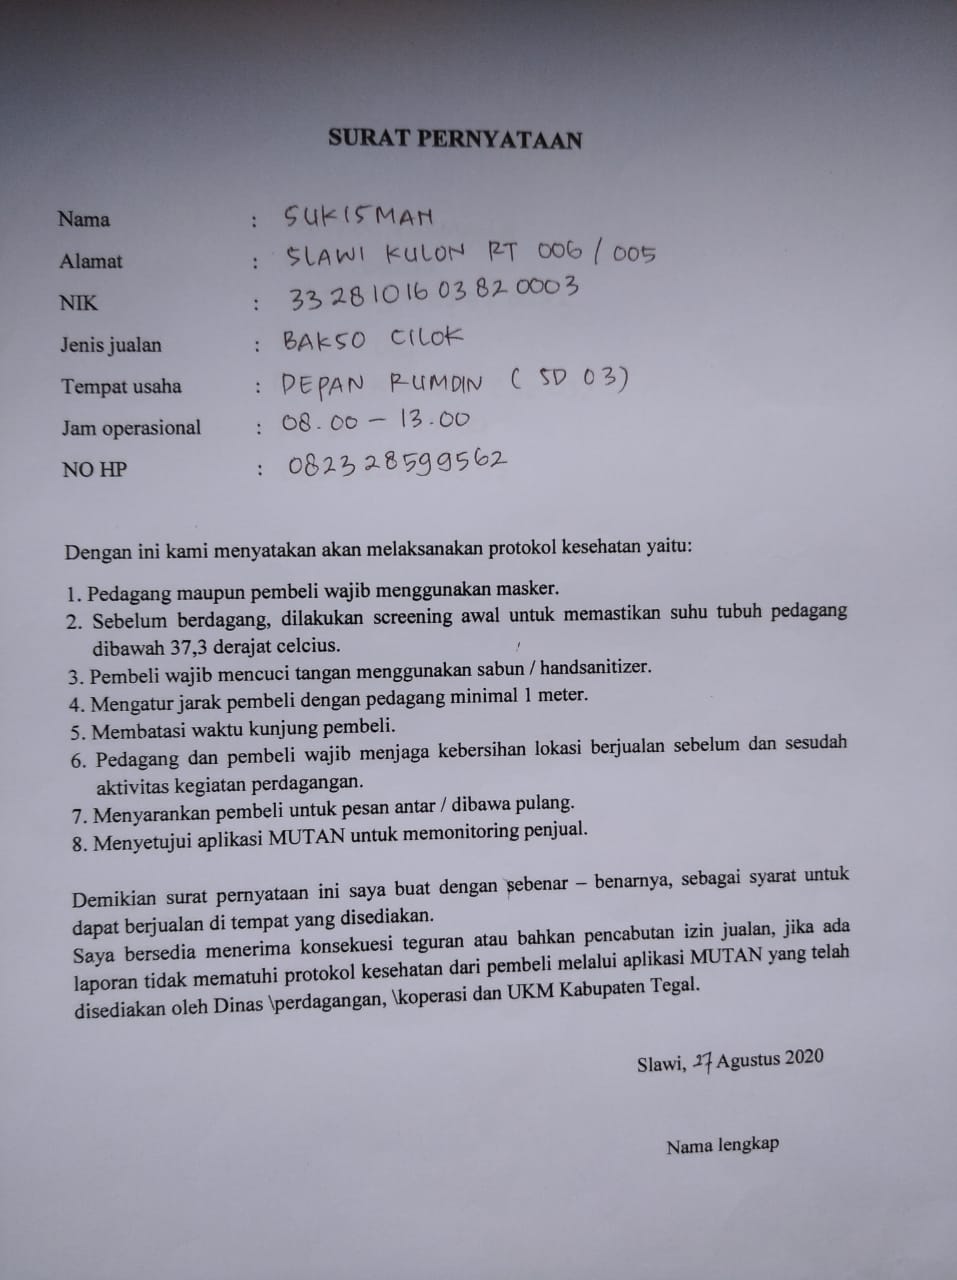 SURAT PERNYATAAN
Nama : SUKISMAN
Alamat : SLAWI KULON RT 006 / 005
NIK : 33 28 10 16 03 82 0003
Jenis jualan : BAKSO CILOK
Tempat usaha : DEPAN RUMDIN ( SD 03)
Jam operasional : 08.00 - 13.00
NO HP : 082328599562
Dengan ini kami menyatakan akan melaksanakan protokol kesehatan yaitu:
1. Pedagang maupun pembeli wajib menggunakan masker.
2. Sebelum berdagang, dilakukan screening awal untuk memastikan suhu tubuh pedagang
dibawah 37,3 derajat celcius.
3. Pembeli wajib mencuci tangan menggunakan sabun / handsanitizer.
4. Mengatur jarak pembeli dengan pedagang minimal 1 meter.
5. Membatasi waktu kunjung pembeli.
6. Pedagang dan pembeli wajib menjaga kebersihan lokasi berjualan sebelum dan sesudah
aktivitas kegiatan perdagangan.
7. Menyarankan pembeli untuk pesan antar / dibawa pulang.
8. Menyetujui aplikasi MUTAN untuk memonitoring penjual.
Demikian surat pernyataan ini saya buat dengan sebenar – benarnya, sebagai syarat untuk
dapat berjualan di tempat yang disediakan.
Saya bersedia menerima konsekuesi teguran atau bahkan pencabutan izin jualan, jika ada
laporan tidak mematuhi protokol kesehatan dari pembeli melalui aplikasi MUTAN yang telah
disediakan oleh Dinas \perdagangan, \koperasi dan UKM Kabupaten Tegal.
Slawi, 27 Agustus 2020
Nama lengkap